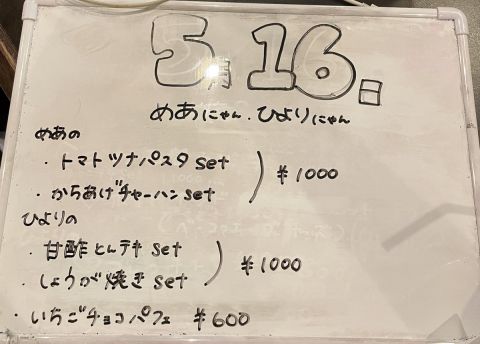 5月16日
めあにゃん.ひよりにゃん
めあの
・トマトツナパスタset
・からあげチャーハンset
¥1000
ひよりの
・甘酢とんテキset
・しょうが焼きset
¥1000
・いちごチョコパフェ ¥600